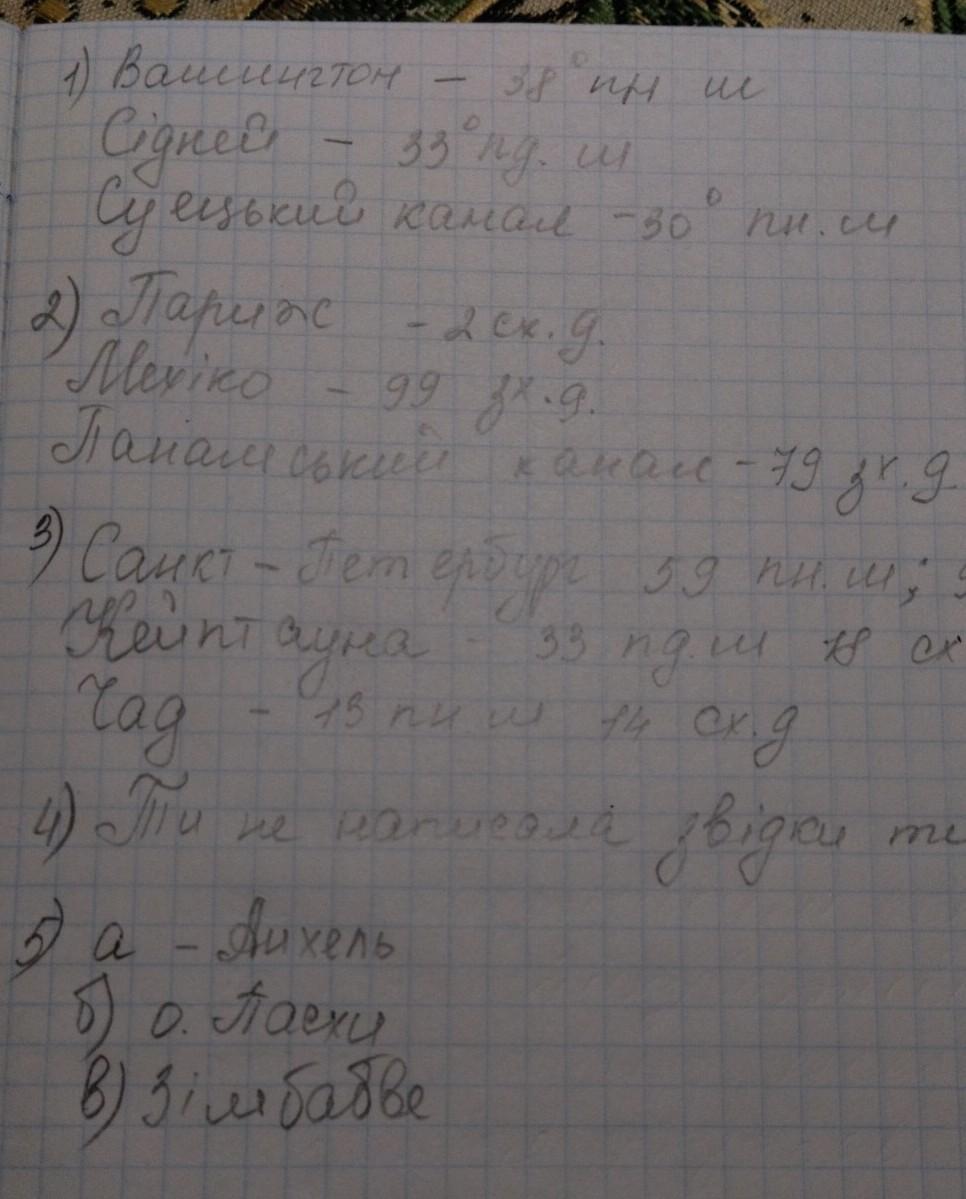 1) Вашингтон - 38° пн ш
Сідней - 33° пд. ш
Суецький канал - 30° пн. ш
2) Париж - 2 сх. д.
Мехіко - 99 зх. д.
Панамський канал - 79 зх. д.
3) Санкт - Петербург 59 пн. ш;
Кейптауна - 33 пд. ш 18 сх
Чад - 13 пн. ш 14 сх. д
4) Ти не написала звідки
5) а - Анхель
б) о. Пасхи
в) Зімбабве